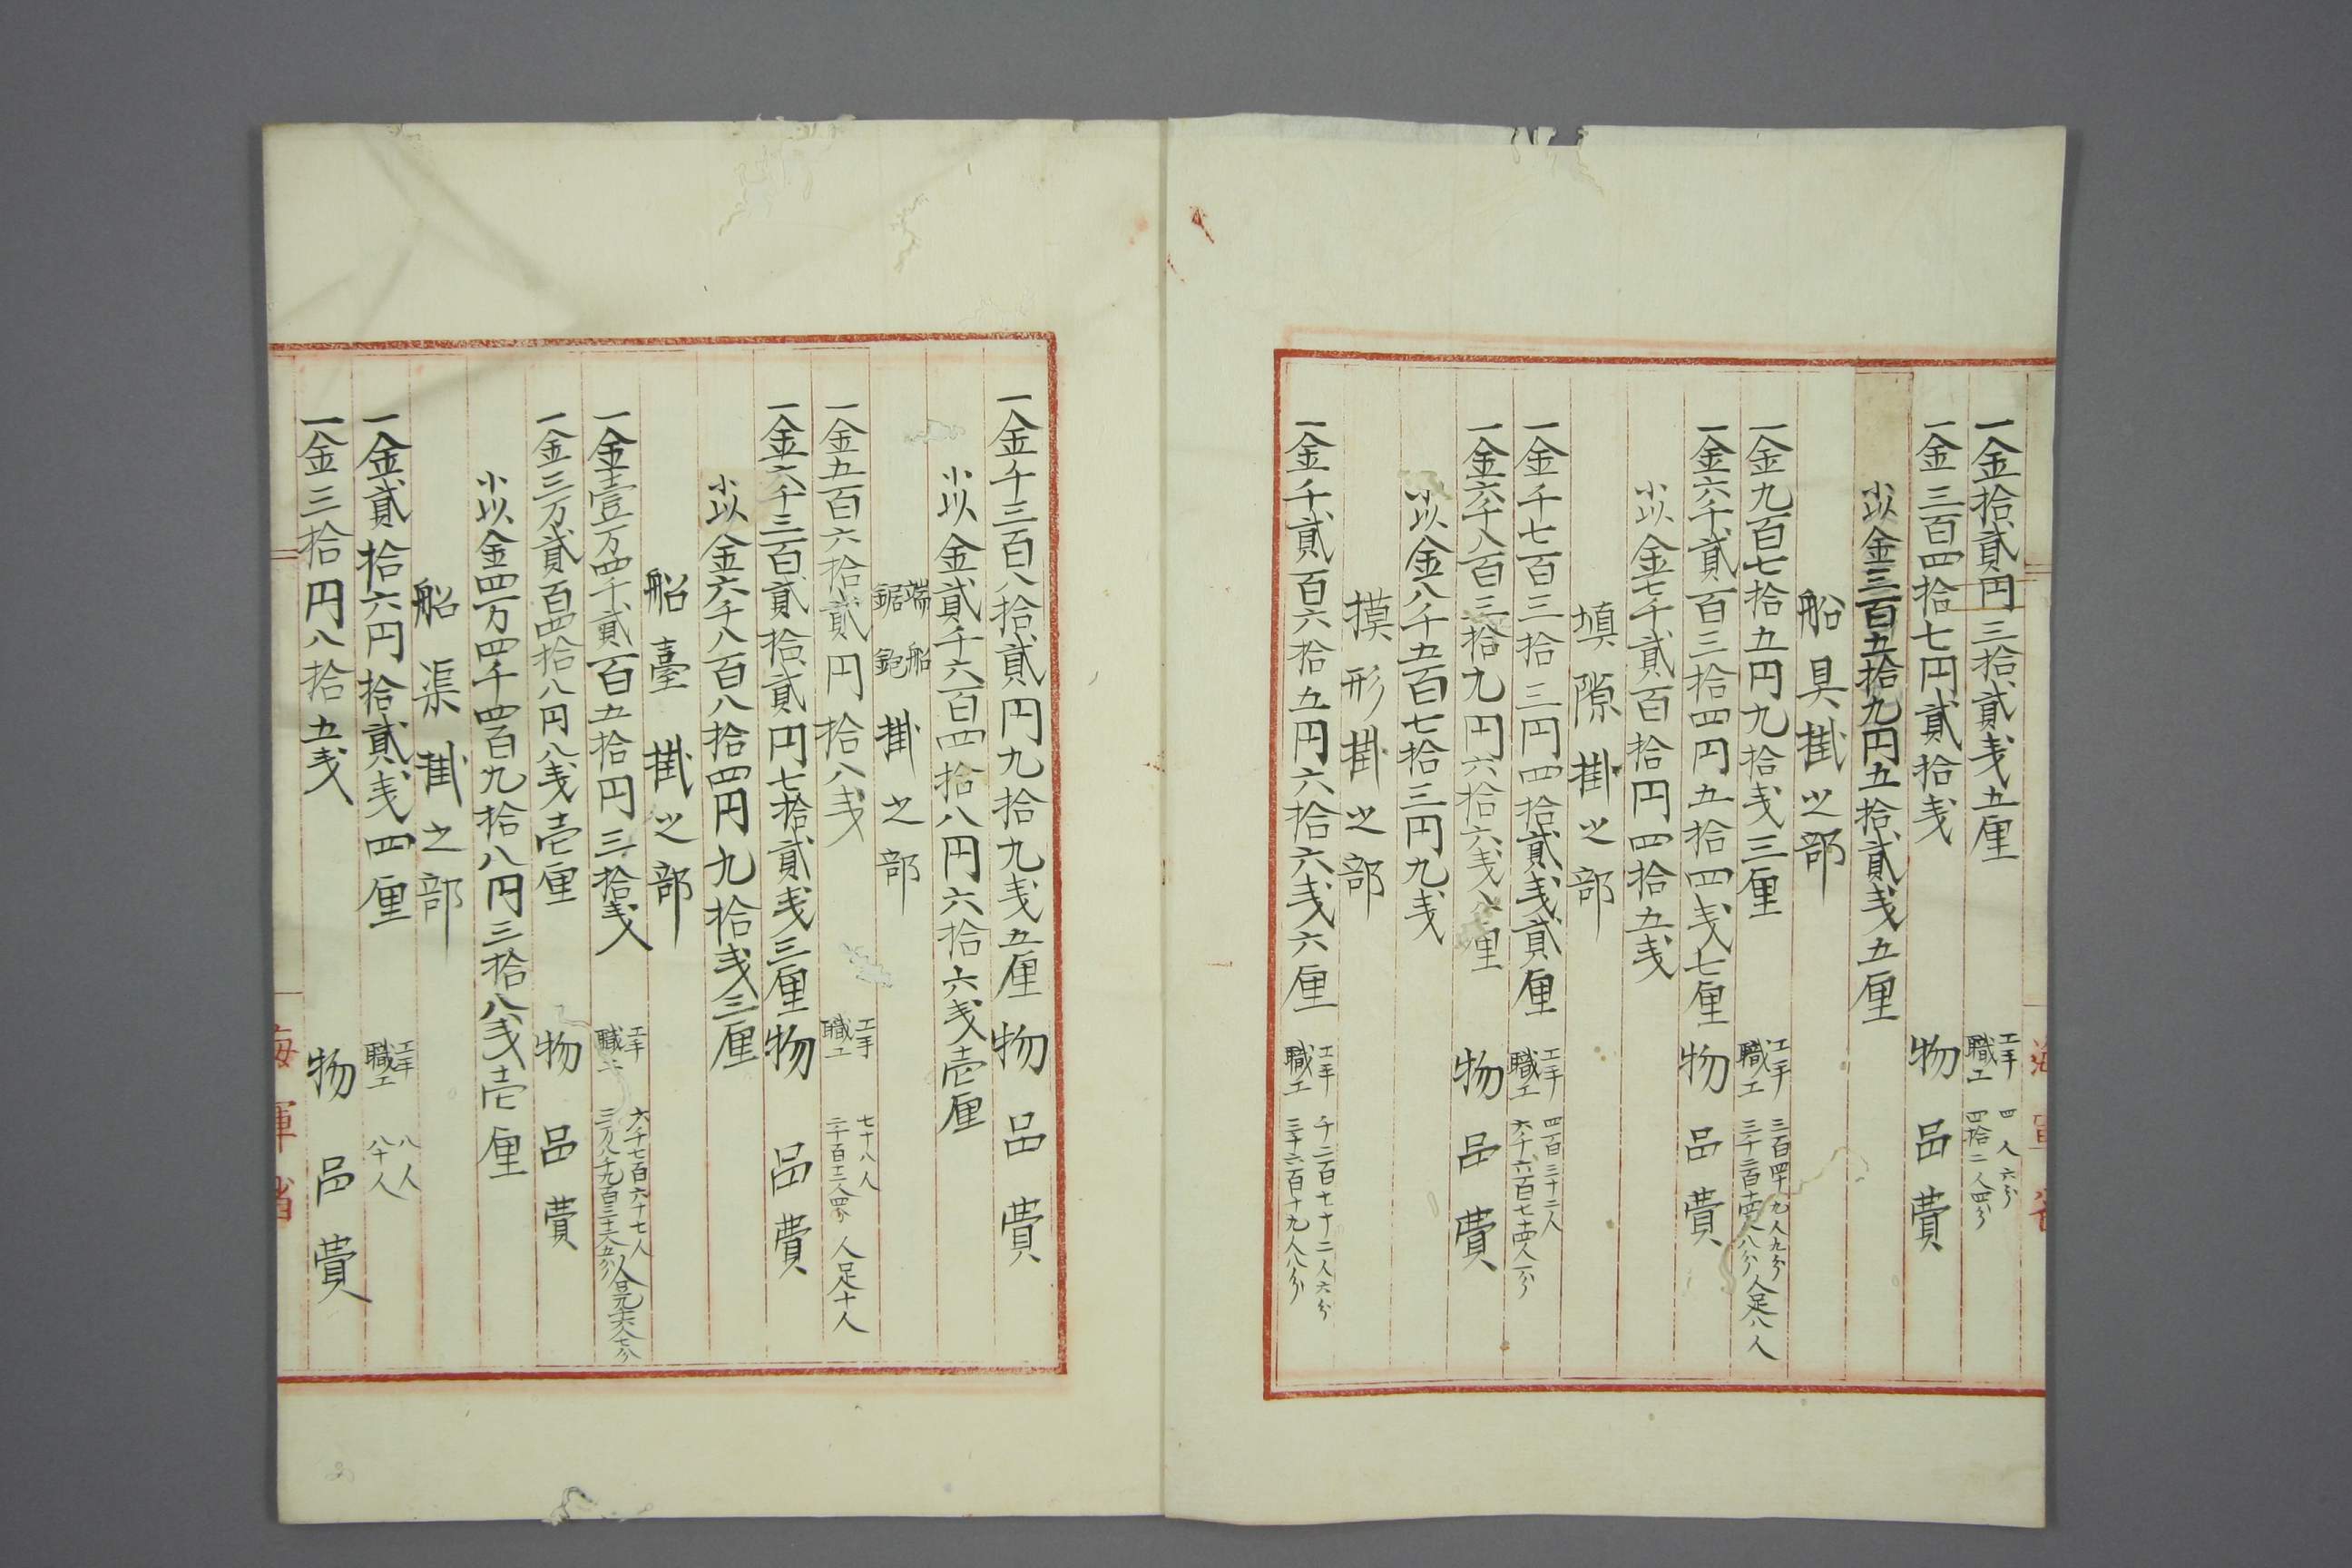 一金拾貳円三拾貳戋五厘 工手 四人六分 職工 四拾二人四分
一金三百四拾七円貳拾戋 物品費
小以金三百五拾九円五拾貳戋五厘
船具掛之部
一金九百七拾五円九拾戋三厘 工手 三百四十九人九分 職工 三千三百十四人八分 人足八人
一金六千貳百三拾四円五拾四戋七厘 物品費
小以金七千貳百拾円四拾五戋
填隙掛之部
一金千七百三拾三円四拾貳戋貳厘 工手 四百三十二人 職工 六千六百七十四人一分
一金六千八百三拾九円六拾六戋八厘 物品費
小以金八千五百七拾三円九戋
摸形掛之部
一金千貳百六拾五円六拾六戋六厘 工手 千二百七十二人六分 職工 三千六百十九人八分
一金千三百八拾貳円九拾九戋五厘 物品費
小以金貳千六百四拾八円六拾六戋壱厘
端船 鋸鉋 掛之部
一金五百六拾貳円拾八戋 工手 七十八人 職工 二千百十二人四分 人足十人
一金六千三百貳拾貳円七拾貳戋三厘 物品費
小以金六千八百八拾四円九拾戋三厘
船臺掛之部
一金壹万四千貳百五拾円三拾戋 工手 六千七百六十七人 職工
一金三万貳百四拾八円八戋壱厘 物品費
小以金四万四千四百九拾八円三拾八戋壱厘
船渠掛之部
一金貳拾六円拾貳戋四厘 工手 八人 職工 八十人
一金三拾円八拾五戋 物品費
海軍省
海軍省